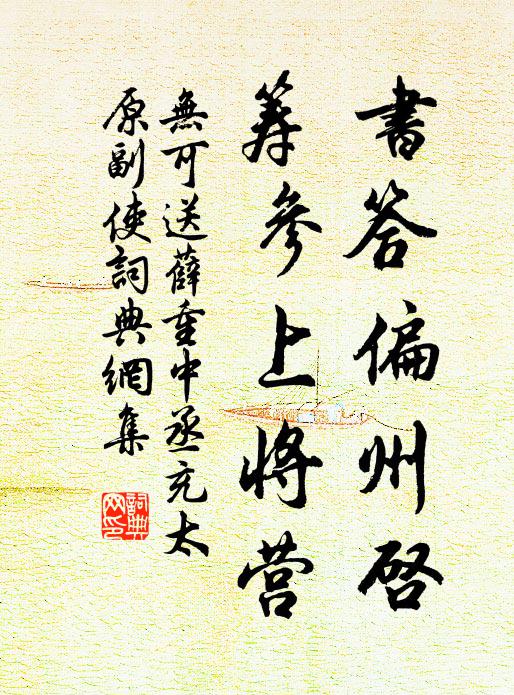 書答偏州啓
筭參上將营
無可送薛重中丞充太
原副使詞典網集
詞典
网印